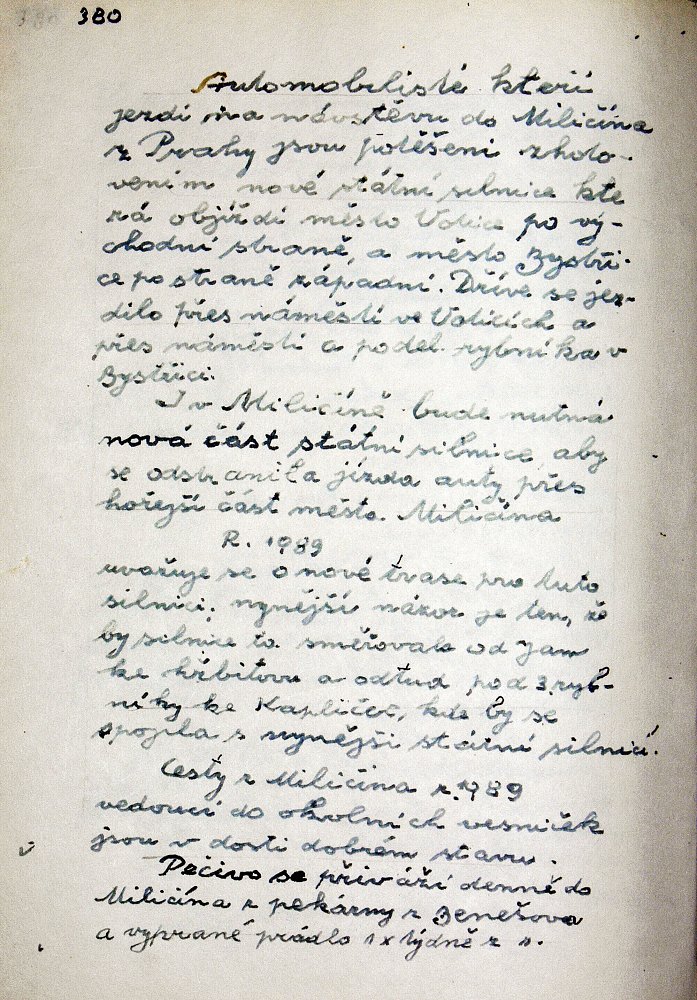 380
Automobilisté kteří
jezdí na návštěvu do Miličína
z Prahy jsou potěšeni zhoto-
vením nové státní silnice kte
rá objíždí město Votice po vý-
chodní straně, a město Bystři-
ce po straně západní. Dříve se jez-
dilo přes náměstí ve Voticích a
přes náměstí a podél rybníka v
Bystřici.
I v Miličíně bude nutná
nová část státní silnice, aby
se odstranila jízda auty přes
hořejší část města Miličína
R. 1989
uvažuje se o nové trase pro tuto
silnici; nynější názor je ten, že
by silnice ta směřovala od Jam
ke hřbitovu a odtud pod 3 ryb-
níky ke Kapličce, kde by se
spojila s nynější státní silnicí.
Cesty z Miličína r. 1989
vedoucí do okolních vesniček
jsou v dosti dobrém stavu.
Pečivo se přiváží denně do
Miličína z pekárny z Benešova
a vyprané prádlo 1x týdně z ".